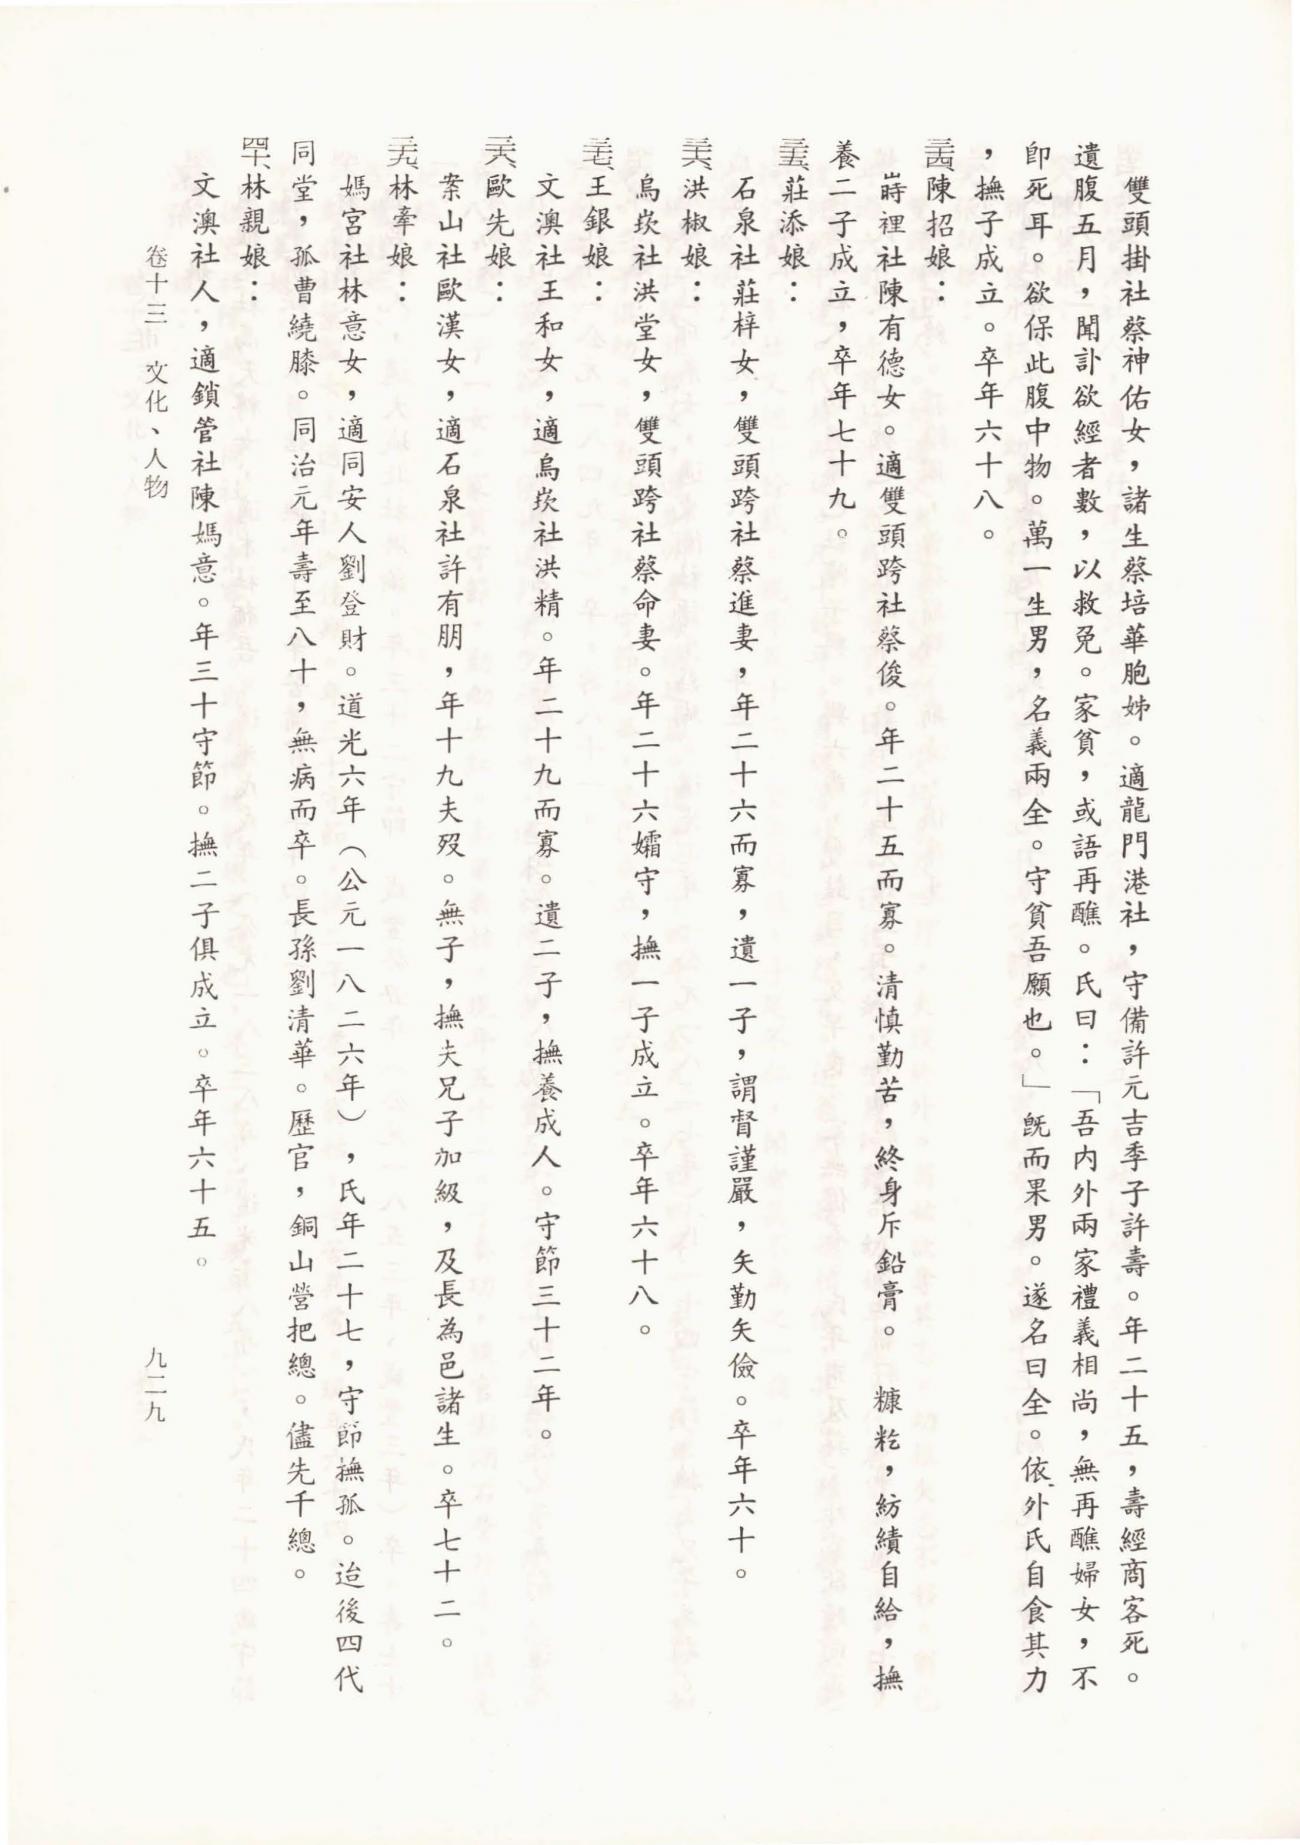 雙頭掛社蔡神佑女，諸生蔡培華胞姊。適龍門港社，守備許元吉季子許壽。年二十五，壽經商客死。
遺腹五月，聞訃欲經者數，以救免。家貧，或語再醮。氏曰：「吾內外兩家禮義相尚，無再醮婦女，不
即死耳。欲保此腹中物。萬一生男，名義兩全。守貧吾願也。」既而果男。遂名曰全。依外氏自食其力
，撫子成立。卒年六十八。
三四、陳招娘：
嵵裡社陳有德女。適雙頭跨社蔡俊。年二十五而寡。清慎勤苦，終身斥鉛膏。糠籺，紡績自給，撫
養二子成立，卒年七十九。
三五、莊添娘：
石泉社莊梓女，雙頭跨社蔡進妻，年二十六而寡，遺一子，謂督謹嚴，矢勤矢儉。卒年六十。
三六、洪椒娘：
烏崁社洪堂女，雙頭跨社蔡命妻。年二十六孀守，撫一子成立。卒年六十八。
三七、王銀娘：
文澳社王和女，適烏崁社洪精。年二十九而寡。遺二子，撫養成人。守節三十二年。
三八、歐先娘：
案山社歐漢女，適石泉社許有朋，年十九夫歿。無子，撫夫兄子加級，及長為邑諸生。卒七十二。
三九、林牽娘：
媽宮社林意女，適同安人劉登財。道光六年（公元一八二六年），氏年二十七，守節撫孤。迨後四代
同堂，孤曹繞膝。同治元年壽至八十，無病而卒。長孫劉清華。歷官，銅山營把總。儘先千總。
四十、林親娘：
文澳社人，適鎖管社陳媽意。年三十守節。撫二子俱成立。卒年六十五。
卷十三　文化、人物
九二九